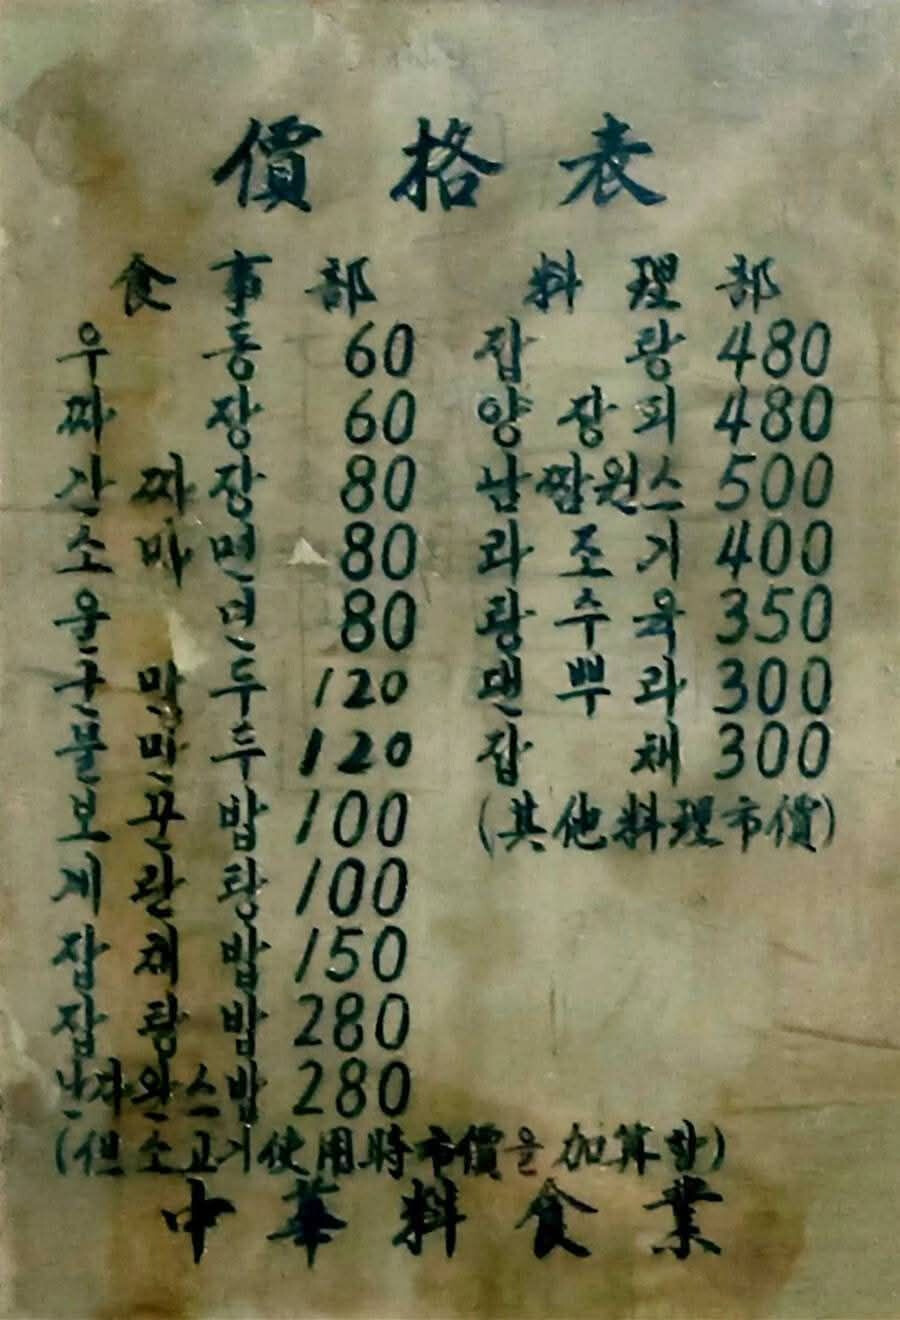 價格表
食事部
우동 60
짜장 60
간짜장 80
소마면 80
울면 80
구만두 120
물만두 120
보꾸밥 100
계란탕 100
잡채밥 150
잡탕밥 280
난자완스밥 280
(但 소고기使用時市價을 加算함)
料理部
잡탕 480
양장피 480
남짬원스 500
라조기 400
탕수육 350
댄뿌라 300
잡채 300
(其他料理市價)
中華料食業